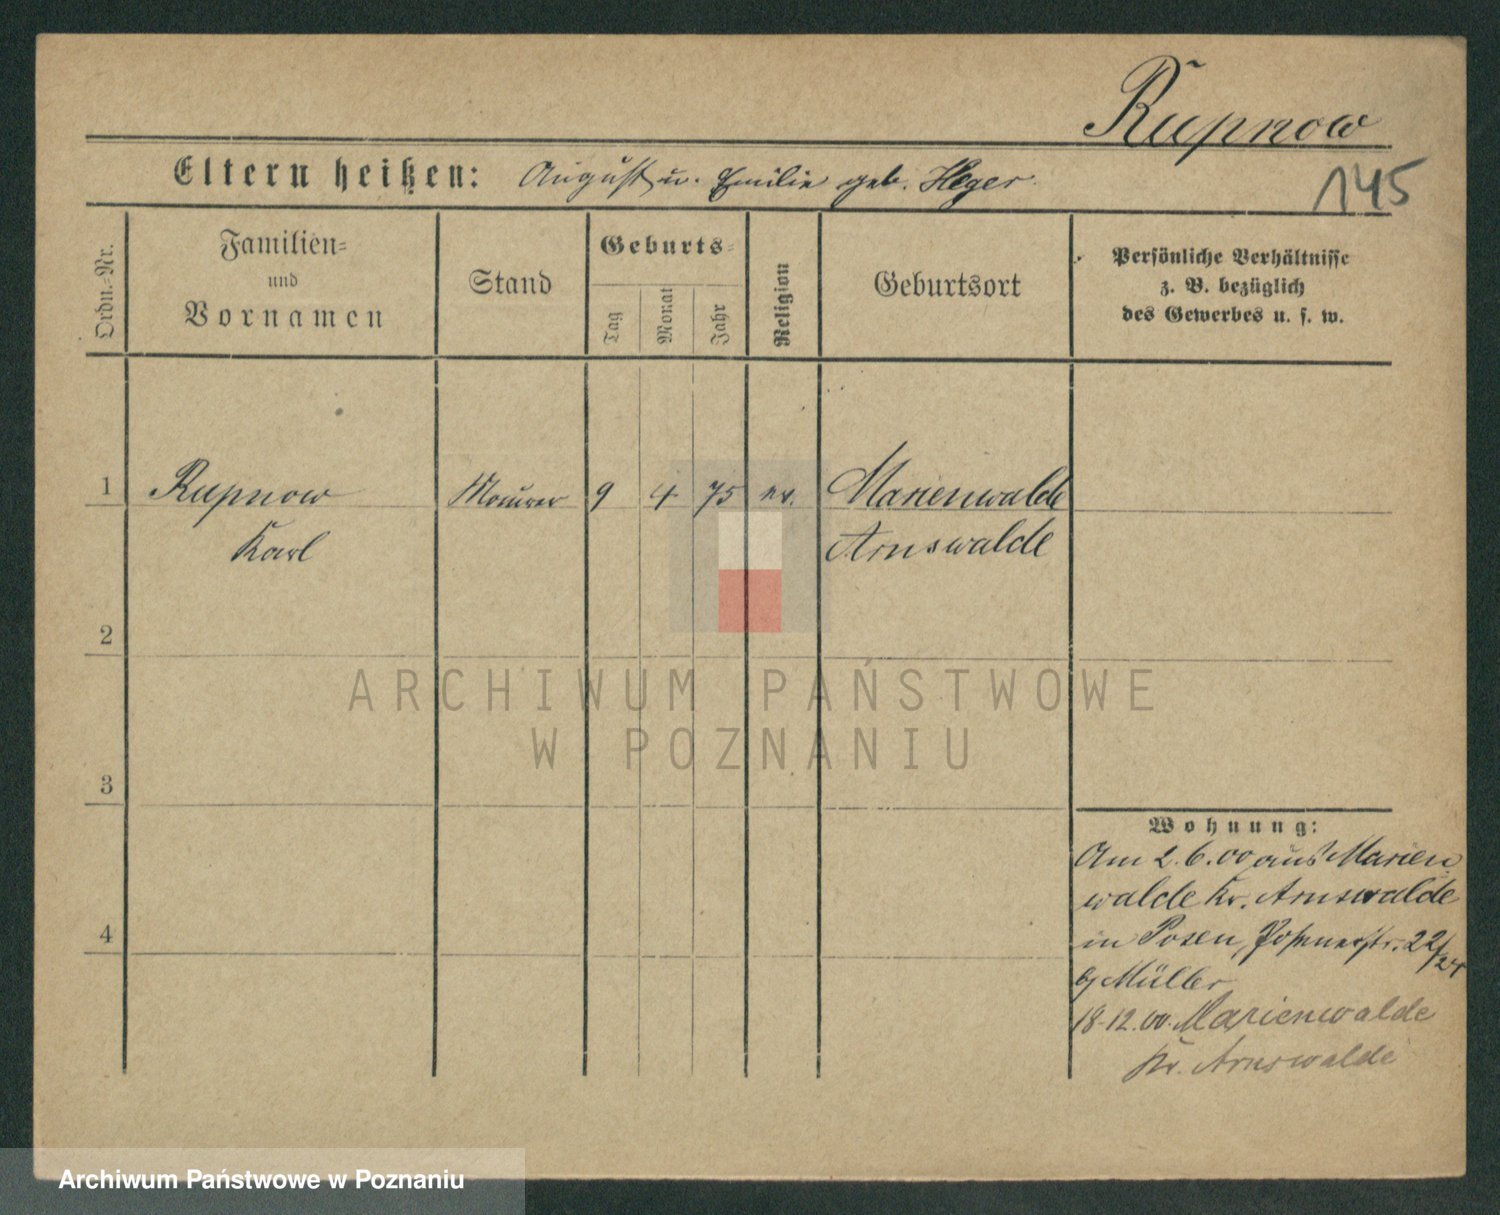 Rupnow
Eltern heißen: August u. Emilie geb. Heger
145
Ordn.-Nr.
Familien-
und
Vornamen
Stand
Geburts-
Tag
Monat
Jahr
Religion
Geburtsort
Persönliche Verhältnisse
z. B. bezüglich
des Gewerbes u. s. w.
1 Rupnow Maurer 9 4 75 ev. Marienwalde
Karl Arnswalde
2
ARCHIWUM PAŃSTWOWE
W POZNANIU
3
Wohnung:
Am 2.6.00 aus Marien
walde Kr. Arnswalde
in Posen, 22/24
4
b/ Müller
18-12.00. Marienwalde
Kr. Arnswalde
Archiwum Państwowe w Poznaniu